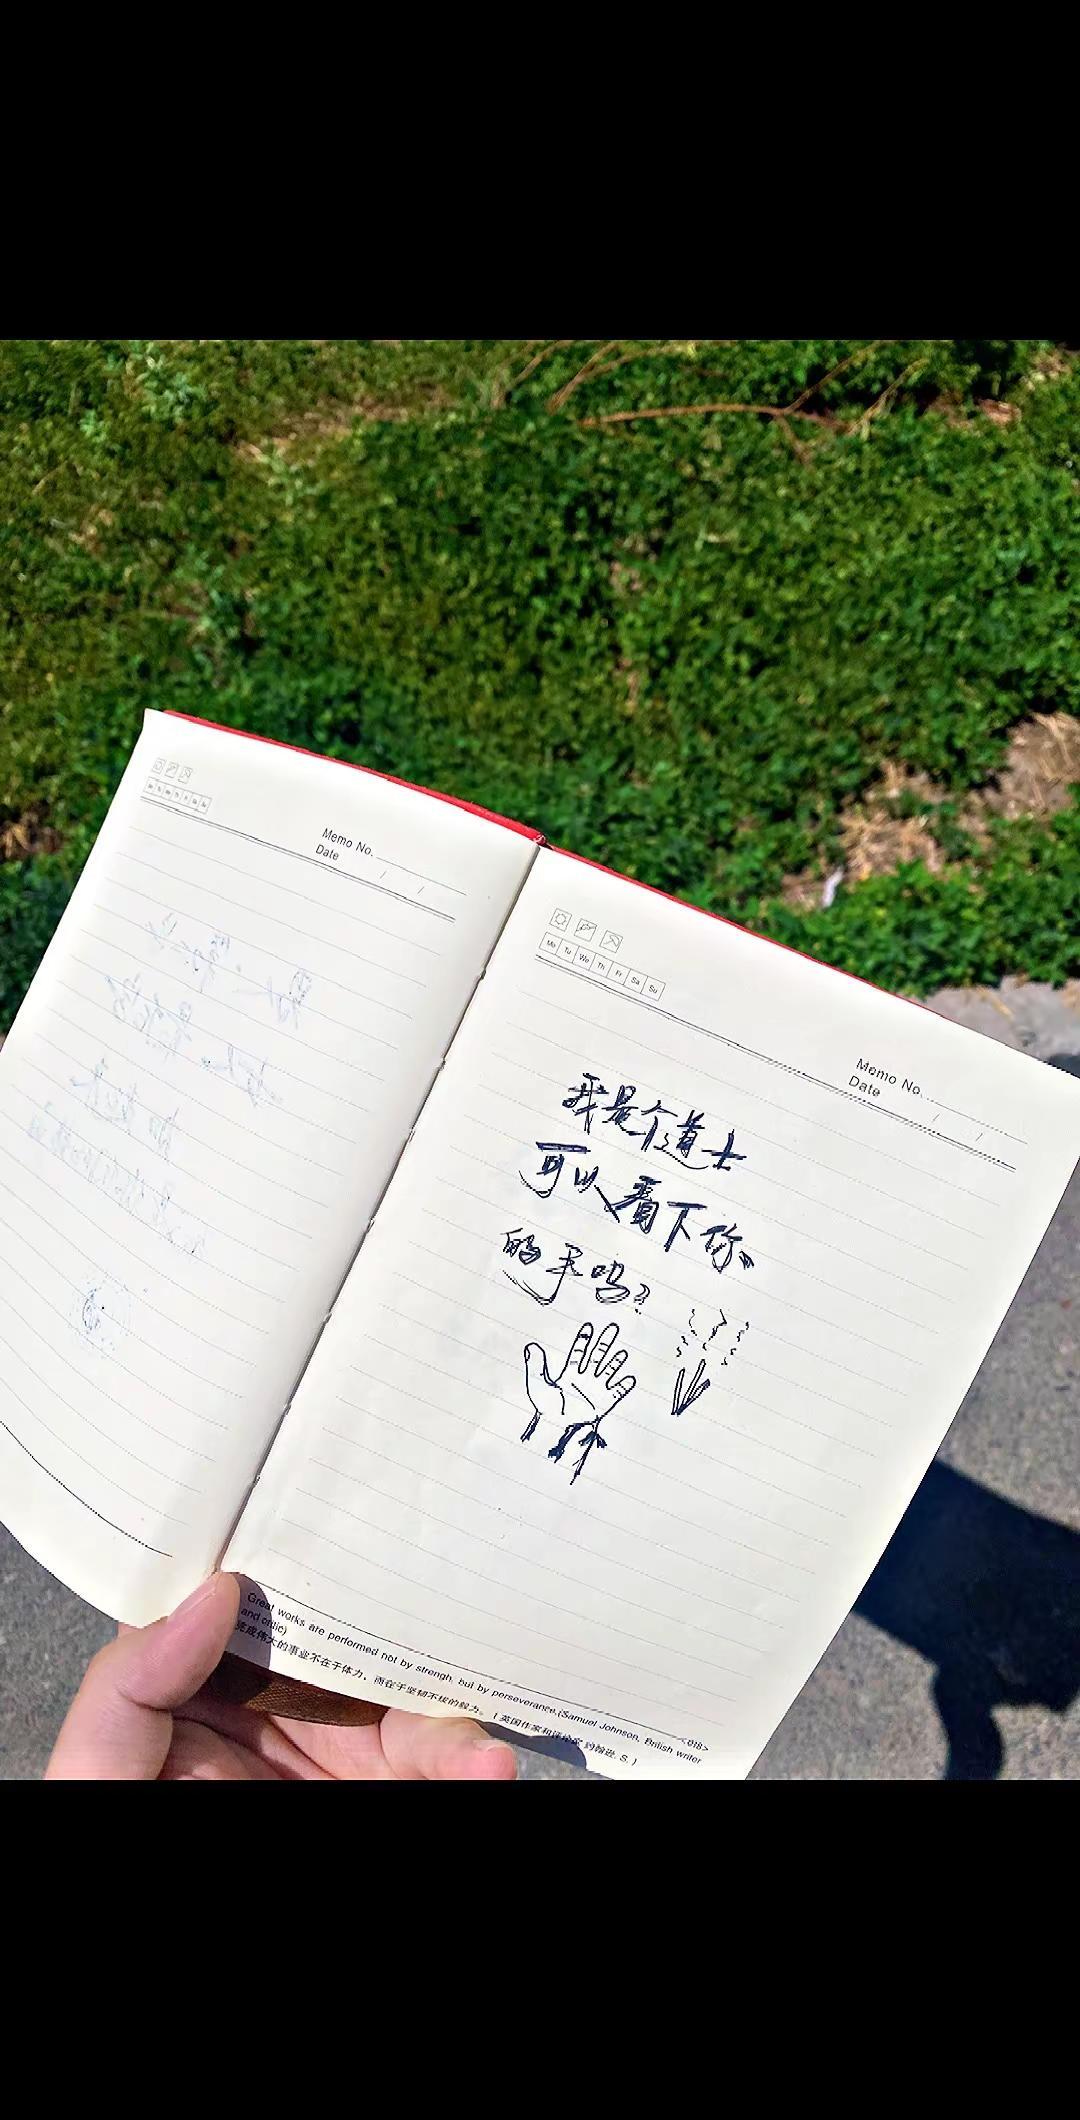 Memo No.
Date / /
Mo Tu We Th Fr Sa Su
Memo No.
Date / /
我是个道士
可以看下你
的手吗?
Great works are performed not by strengh, but by perseverance.(Samuel Johnson, British writer
and critic)
完成伟大的事业不在于体力，而在于坚韧不拔的毅力。(英国作家和评论家 约翰逊. S. )
<018>